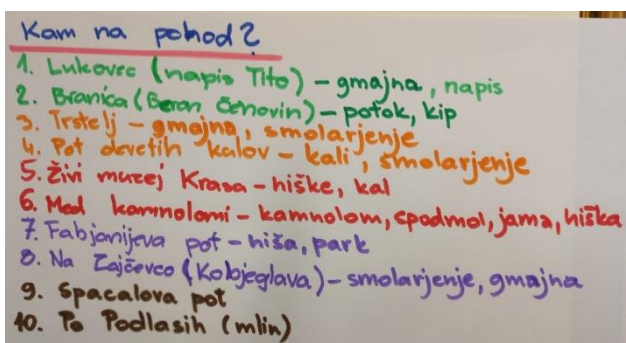 Kam na pohod?
1. Lukovec (napis Tito) – gmajna, napis
2. Branica (Beran Čenovin) – potok, kip
3. Trstelj – gmajna, smolarjenje
4. Pot devetih kalov – kali, smolarjenje
5. Živi muzej Krasa – hiške, kal
6. Med kamnolomi – kamnolom, spodmol, jama, hiška
7. Fabjanijeva pot – hiša, park
8. Na Zajčevco (Kobjeglava) – smolarjenje, gmajna
9. Spacalova pot
10. Po Podlasih (mlin)